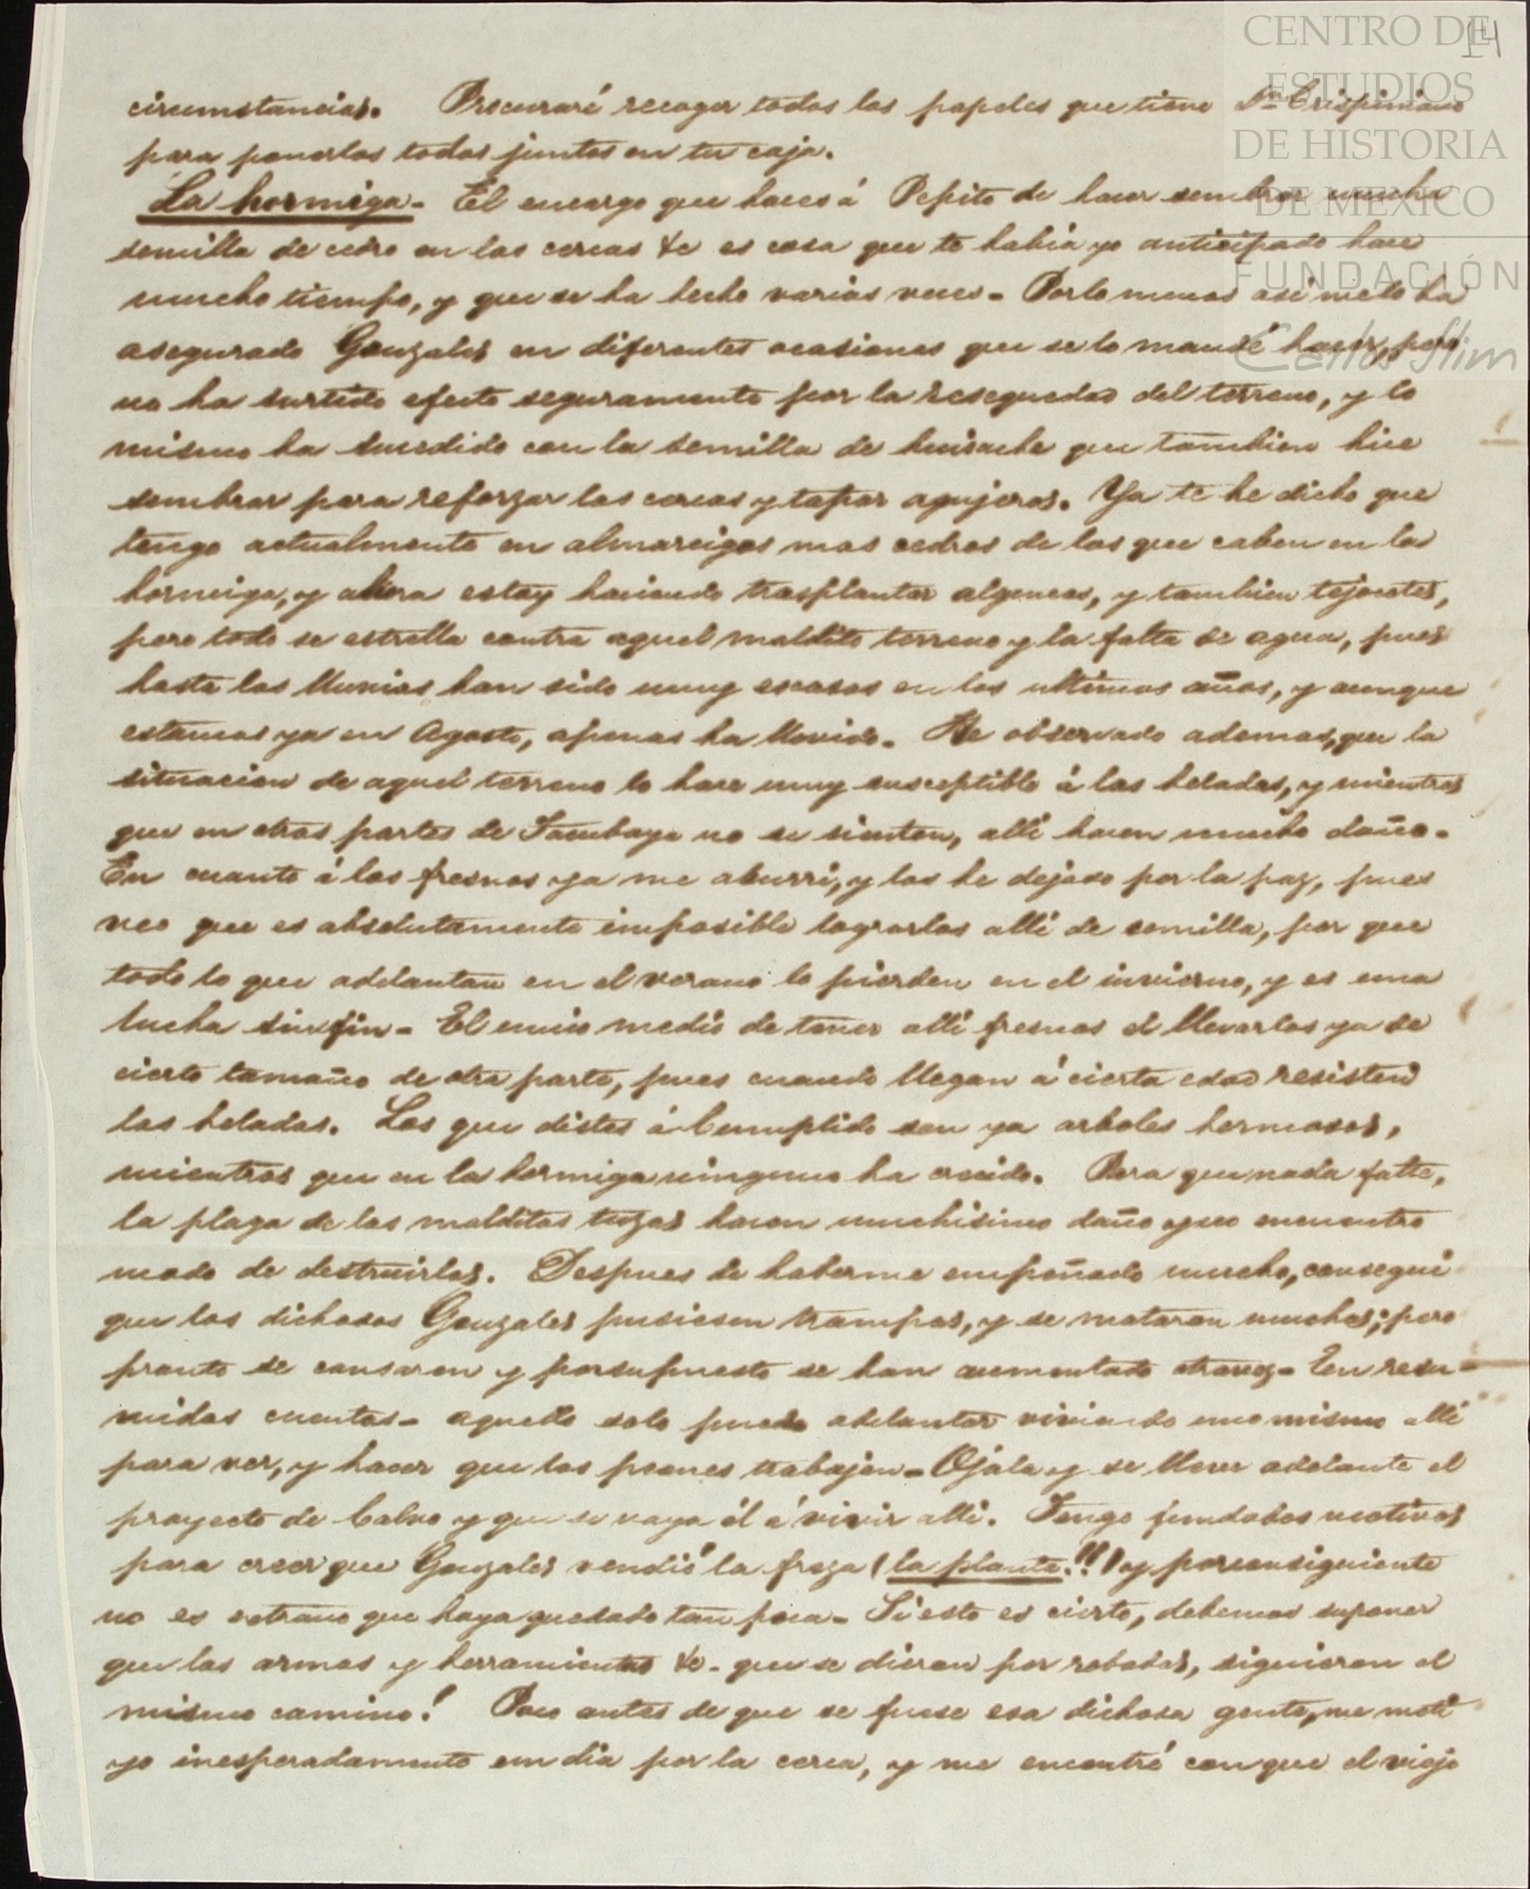 CENTRO DE
ESTUDIOS
DE HISTORIA
DE MEXICO
FUNDACIÓN
Carlos Slim
14
circumstancias. Procuraré recoger todos los papeles que tiene Dn Crispiniano
para ponerlos todos juntos en tu caja.
La hormiga - El encargo que haces á Pepito de hacer sembrar mucha
semilla de cedro en las cercas &c es cosa que te había yo anticipado hace
mucho tiempo, y que se ha hecho varias veces - Por lo menos asi me lo ha
asegurado Gonzales en diferentes ocasiones que se lo mandé hacer, pero
no ha surtido efecto seguramente por la resequedad del terreno, y lo
mismo ha sucedido con la semilla de huisache que tambien hice
sembrar para reforzar las cercas y tapar agujeros. Ya te he dicho que
tengo actualmente en almarcigos mas cedros de los que caben en la
hormiga, y ahora estoy haciendo trasplantar algunos, y tambien tejocotes,
pero todo se estrella contra aquel maldito terreno y la falta de agua, pues
hasta las lluvias han sido muy escasas en los ultimos años, y aunque
estamos ya en Agosto, apenas ha llovido. He observado ademas, que la
situacion de aquel terreno lo hace muy susceptible á las heladas, y mientras
que en otras partes de Tacubaya no se sienten, alli hacen mucho daño -
En cuanto á los fresnos ya me aburri, y los he dejado por la paz, pues
veo que es absolutamente imposible lograrlos alli de semilla, por que
todo lo que adelantan en el verano lo pierden en el invierno, y es una
lucha sin fin - El unico medio de tener alli fresnos el llevarlos ya de
cierto tamaño de otra parte, pues cuando llegan á cierta edad resisten
las heladas. Los que distes á Cumplido son ya arboles hermosos,
mientras que en la hormiga ninguno ha crecido. Para que nada falte,
la plaga de las malditas tuzas hacen muchisimo daño y no encuentro
modo de destruirlas. Despues de haberme empeñado mucho, consegui
que los dichosos Gonzales pusiesen trampas, y se mataron muchas; pero
pronto se cansaron y por supuesto se han aumentado otra vez - En resu-
midas cuentas - aquello solo puede adelantar viviendo uno mismo alli
para ver, y hacer que los peones trabajen - Ojala y se lleve adelante el
proyecto de Calvo y que se vaya él á vivir alli. Tengo fundados motivos
para creer que Gonzales vendió la fresa (la planta!!) y por consiguiente
no es estraño que haya quedado tan poca - Si esto es cierto, debemos suponer
que las armas y herramientas &c. que se dieron por robadas, siguieron el
mismo camino! Poco antes de que se fuese esa dichosa gente, me meti
yo inesperadamente un dia por la cerca, y me encontré con que el viejo